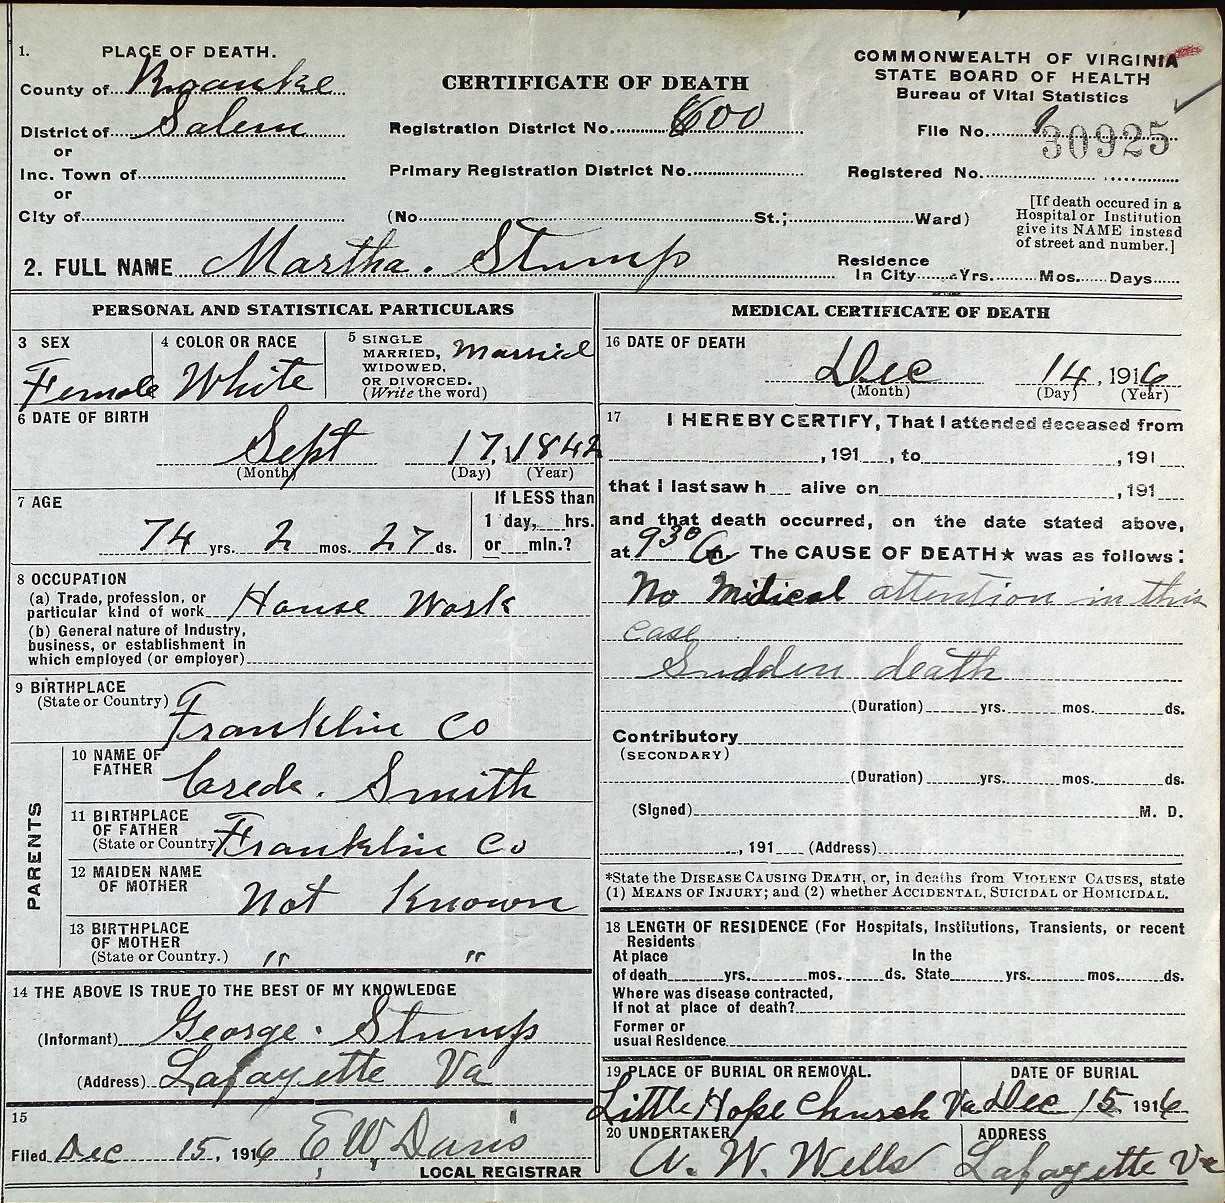 1. PLACE OF DEATH.
County of Roanoke
District of Salem
or
Inc. Town of
or
City of
CERTIFICATE OF DEATH
Registration District No. 600
Primary Registration District No.
(No. St.; Ward)
COMMONWEALTH OF VIRGINIA
STATE BOARD OF HEALTH
Bureau of Vital Statistics
File No. 30925
Registered No.
[If death occured in a
Hospital or Institution
give its NAME instead
of street and number.]
2. FULL NAME Martha. Stump
Residence
In City Yrs. Mos. Days
PERSONAL AND STATISTICAL PARTICULARS
3 SEX
Female
4 COLOR OR RACE
White
5 SINGLE
MARRIED,
WIDOWED,
OR DIVORCED.
(Write the word)
Married
6 DATE OF BIRTH
Sept 17, 1842
(Month) (Day) (Year)
7 AGE
74 yrs. 2 mos. 27 ds.
If LESS than
1 day, hrs.
or min.?
8 OCCUPATION
(a) Trade, profession, or
particular kind of work House Work
(b) General nature of Industry,
business, or establishment in
which employed (or employer)
9 BIRTHPLACE
(State or Country)
Franklin Co
PARENTS
10 NAME OF
FATHER
Crede. Smith
11 BIRTHPLACE
OF FATHER
(State or Country) Franklin Co
12 MAIDEN NAME
OF MOTHER
Not Known
13 BIRTHPLACE
OF MOTHER
(State or Country.) " "
14 THE ABOVE IS TRUE TO THE BEST OF MY KNOWLEDGE
(Informant) George. Stump
(Address) Lafayette Va
15
Filed Dec 15, 1916 E, W, Davis
LOCAL REGISTRAR
MEDICAL CERTIFICATE OF DEATH
16 DATE OF DEATH
Dec 14, 1916
(Month) (Day) (Year)
17 I HEREBY CERTIFY, That I attended deceased from
, 191 , to , 191
that I last saw h alive on , 191
and that death occurred, on the date stated above,
at 930 a m. The CAUSE OF DEATH★ was as follows:
No Midical attention in this
case
Sudden death
(Duration) yrs. mos. ds.
Contributory
(SECONDARY)
(Duration) yrs. mos. ds.
(Signed) M. D.
, 191 (Address)
*State the DISEASE CAUSING DEATH, or, in deaths from VIOLENT CAUSES, state
(1) MEANS OF INJURY; and (2) whether ACCIDENTAL, SUICIDAL or HOMICIDAL.
18 LENGTH OF RESIDENCE (For Hospitals, Institutions, Transients, or recent
Residents
At place In the
of death yrs. mos. ds. State yrs. mos. ds.
Where was disease contracted,
If not at place of death?
Former or
usual Residence
19 PLACE OF BURIAL OR REMOVAL.
Little Hope Church Va
DATE OF BURIAL
Dec 15 1916
20 UNDERTAKER
A. W. Wells
ADDRESS
Lafayette Va